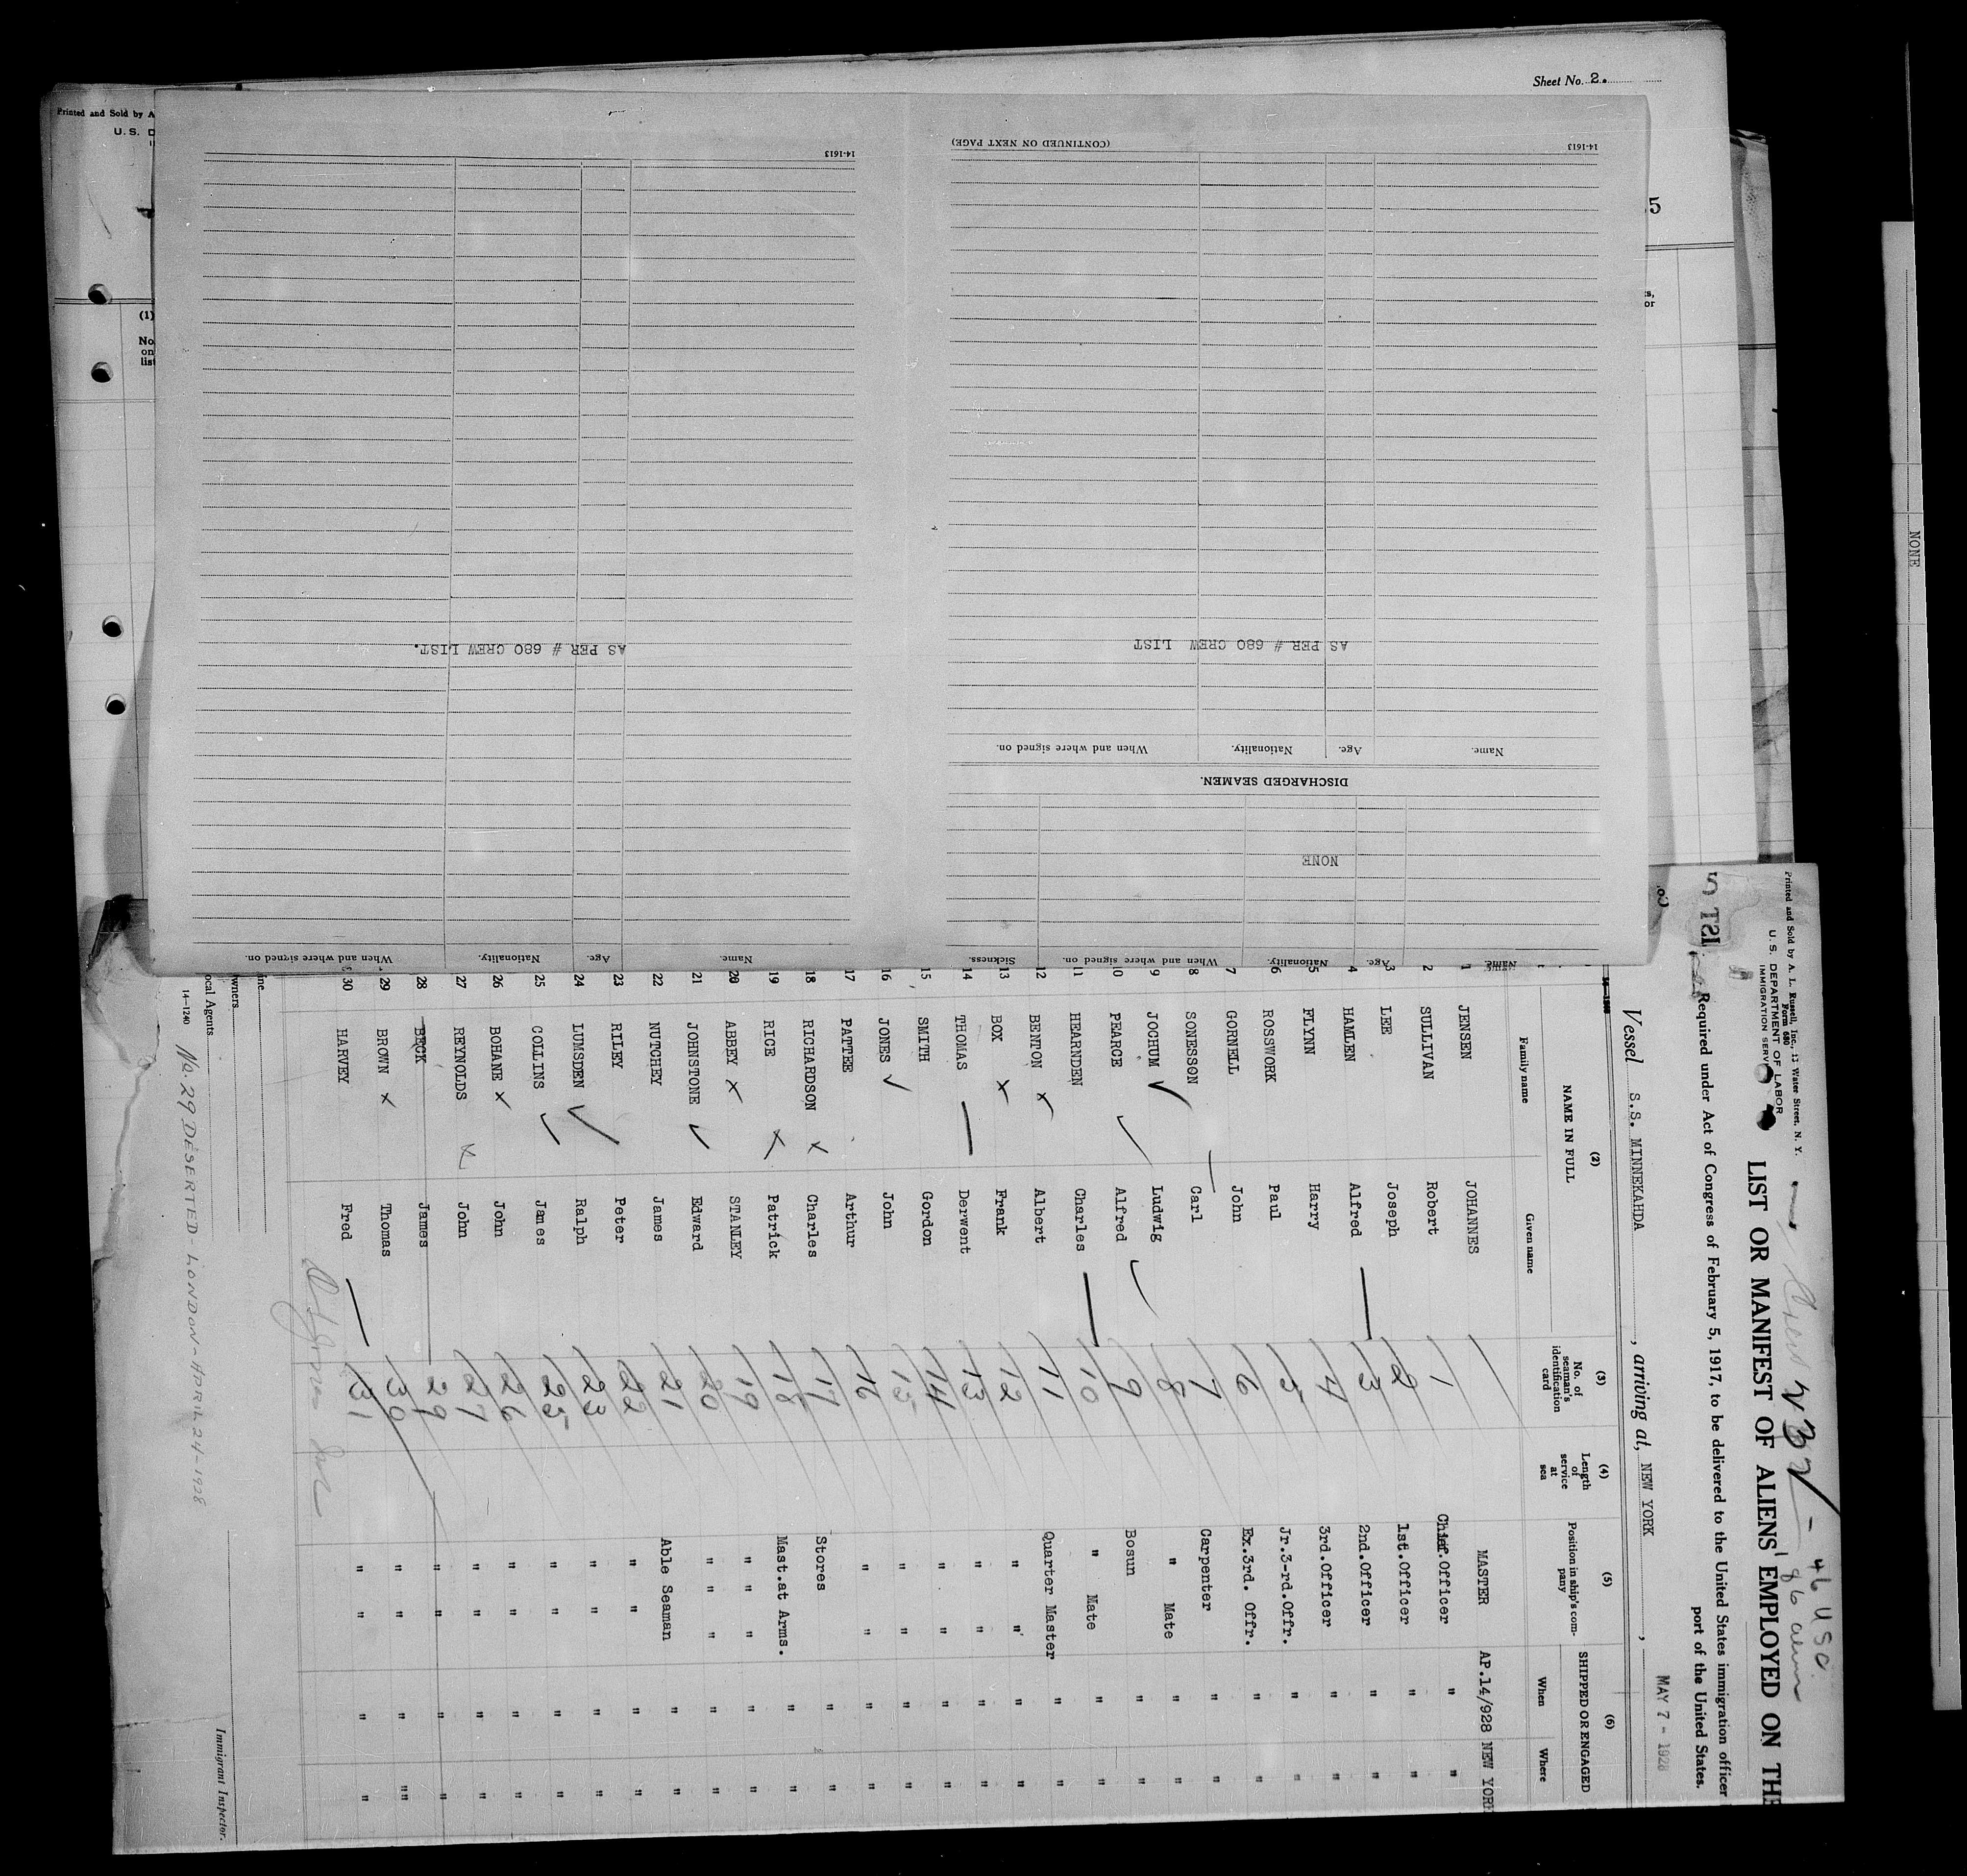 Sheet No. 2.
Printed and Sold by A
U. S. D
5
(1)
No
on
list
s,
or
NONE
(CONTINUED ON NEXT PAGE)
14-1613
14-1613
AS PER # 680 CREW LIST
AS PER # 680 CREW LIST.
Name. Age. Nationality. When and where signed on.
DISCHARGED SEAMEN.
NONE
Name. Age. Nationality. When and where signed on. Sickness.
Name. Age. Nationality. When and where signed on.
Printed and Sold by A. L. Russell, Inc., 12 Water Street, N. Y.
Form 680
U. S. DEPARTMENT OF LABOR
IMMIGRATION SERVICE
46 USC
86 alien
LIST OR MANIFEST OF ALIENS EMPLOYED ON THE
Required under Act of Congress of February 5, 1917, to be delivered to the United States immigration officer
port of the United States.
Vessel S.S. MINNEKAHDA, arriving at, NEW YORK, MAY 7 - 1928
(2) (3) (4) (5) (6)
NAME IN FULL No. of seaman's identification card Length of service at sea Position in ship's company SHIPPED OR ENGAGED
Family name Given name When Where
1 JENSEN JOHANNES MASTER AP.14/928 NEW YORK
2 SULLIVAN Robert 1 Chief.Officer " "
3 LEE Joseph 2 1st.Officer " "
4 HAMLEN Alfred 3 2nd.Officer " "
5 FLYNN Harry 4 3rd.Officer " "
6 ROSSWORK Paul 5 Jr.3-rd.Offr. " "
7 GORNELL John 6 Ex.3rd. Offr. " "
8 SONESSON Carl 7 Carpenter " "
9 JOCHUM Ludwig 8 " Mate " "
10 PEARCE Alfred 9 Bosun " "
11 HEARNDEN Charles 10 " Mate " "
12 BENTON Albert 11 Quarter Master " "
13 BOX Frank 12 " " " "
14 THOMAS Derwent 13 " " " "
15 SMITH Gordon 14 " " " "
16 JONES John 15 " " " "
17 PATTEE Arthur 16 " " " "
18 RICHARDSON Charles 17 Stores " "
19 RICE Patrick 18 Mast.at Arms. " "
20 ABBEY STANLEY 19 " " " " "
21 JOHNSTONE Edward 20 " " " " "
22 NUTCHEY James 21 Able Seaman " "
23 RILEY Peter 22 " " " "
24 LUMSDEN Ralph 23 " " " "
25 COLLINS James 25 " " " "
26 BOHANE John 26 " " " "
27 REYNOLDS John 27 " " " "
28 BECK James 29 " " " "
29 BROWN Thomas 30 " " " ""
30 HARVEY Fred 31 " " " "
ine
wners
ocal Agents
14-1240
No. 29 DESERTED - LONDON - APRIL 24 - 1928
Immigrant Inspector.